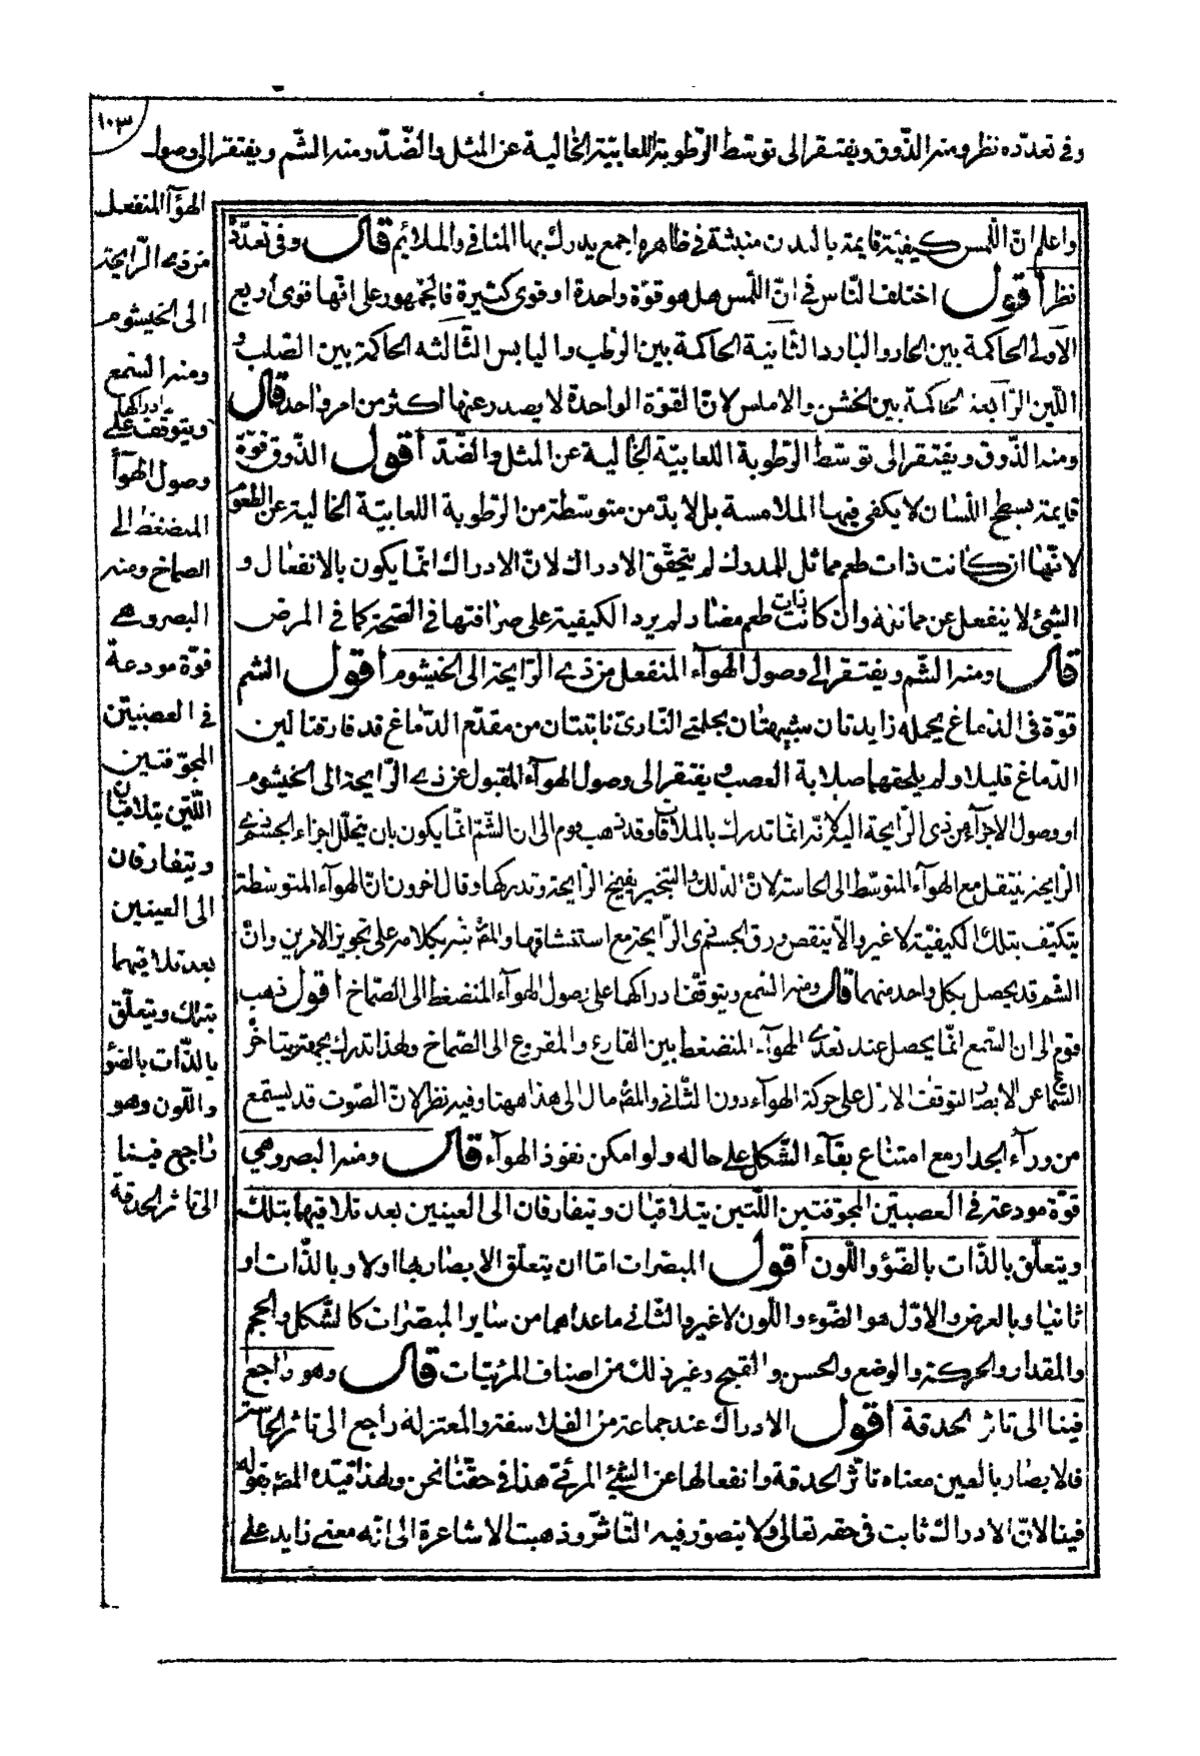 ١٠٣
وفي تعدّده نظر ومنه الذّوق ويفتقر الى توسّط الرّطوبة اللعابيّة الخالية عن المثل والضّدّ ومنه الشّم ويفتقر الى وصول
الهوآء المنفعل
من ذى الرّايحة
الى الخيشوم
ومنه السّمع
ويتوقّف ادراكها على
وصول الهوآء
المنضغط الى
الصماخ ومنه
البصر وهى
قوّة مودعة
فى العصبتين
المجوّفتين
اللّتين يتلاقيان
ويتفارقان
الى العينين
بعد تلاقيهما
بتلك ويتعلّق
بالذّات بالضّوء
واللّون وهو
راجع فينا
الى تاثر الحدقة
واعلم انّ اللّمس كيفيّة قايمة بالبدن منبثة فى ظاهره اجمع يدرك بها المنافى والملائم قال وفى تعدّده
نظر اقول اختلف النّاس فى انّ اللّمس هل هو قوّة واحدة او قوى كثيرة فالجمهور على انّها قوى اربع
الاولى الحاكمة بين الحار والبارد الثّانية الحاكمة بين الرّطب واليابس الثّالثه الحاكمة بين الصّلب و
اللّين الرّابعة الحاكمة بين الخشن والاملس لانّ القوّة الواحدة لا يصدر عنها اكثر من امر واحد قال
ومنه الذّوق ويفتقر الى توسّط الرّطوبة اللعابيّة الخالية عن المثل والضّدّ اقول الذّوق قوّة
قايمة بسطح اللّسان لا يكفى فيها الملامسة بل لابدّ من متوسّطة من الرّطوبة اللعابيّة الخالية عن الطعوم
لانّها ان كانت ذات طعم مماثل للمدرك لم يتحقّق الادراك لانّ الادراك انّما يكون بالانفعال و
الشيئ لا ينفعل عن مماثله وان كانت ذات طعم مضاد لم يرد الكيفية على صرافتها فى الصّحة كما فى المرض
قال ومنه الشّم ويفتقر الى وصول الهوآء المنفعل من ذى الرّايحة الى الخيشوم اقول الشم
قوّة فى الدّماغ يحمله زايدتان شبيهتان بحلمتى الثّدى نابتتان من مقدّم الدّماغ قد فارقتا لين
الدّماغ قليلا ولم يلحقهما صلابة العصب ويفتقر الى وصول الهوآء المقبول عن ذى الرّايحة الى الخيشوم
او وصول الاجزآء من ذى الرّايحة اليه لانّه انّما تدرك بالملاقاة وقد ذهب قوم الى ان الشّم انّما يكون بان يتحلّل اجزاء الجسم ذى
الرّايحة ينتقل مع الهوآء المتوسّط الى الحاسة لانّ الدّلك والتبخير يهيج الرّايحة وتدركها وقال اخرون انّ الهوآء المتوسّطة
يتكيّف بتلك الكيفيّة لا غير والاّ ينقص ورق الجسم ذى الرّايحة مع استنشاقها والمصّ يشير بكلامه على تجويز الامرين وانّ
الشّم قد يحصل بكل واحد منهما قال ومنه السّمع ويتوقّف ادراكها على وصول الهوآء المنضغط الى الصّماخ اقول ذهب
قوم الى ان السّمع انّما يحصل عند تعدّى الهوآء المنضغط بين القارع والمقروع الى الصّماخ ولهذا تدرك بجهته ويتاخّر
السّماع عن الابصار لتوقّف الاوّل على حركة الهوآء دون الثّانى والمصّ مال الى هذا ههنا وفيه نظر لانّ الصّوت قد يستمع
من ورآء الجدار مع امتناع بقآء الشّكل على حاله ولو امكن نفوذ الهوآء قال ومنه البصر وهى
قوّة مودعة فى العصبتين المجوّفتين اللّتين يتلاقيان ويتفارقان الى العينين بعد تلاقيهما بتلك
ويتعلّق بالذّات بالضّوء واللّون اقول المبصرات امّا ان يتعلّق الابصار بها اولا وبالذّات او
ثانيا وبالعرض والاوّل هو الضّوء واللّون لا غير والثّانى ما عداهما من ساير المبصرات كالشّكل والحجم
والمقدار والحركة والوضع والحسن والقبح وغير ذلك من اصناف المرئيّات قال وهو راجع
فينا الى تاثر الحدقة اقول الادراك عند جماعة من الفلاسفة والمعتزلة راجع الى تاثر الحاسّة
فالابصار بالعين معناه تاثّر الحدقة وانفعالها عن الشّيئ المرئىّ هذا فى حقّنا نحن ولهذا قيّده المصّ بقوله
فينا لانّ الادراك ثابت فى حقه تعالى ولا يتصوّر فيه التّاثّر وذهبت الاشاعرة الى انّه معنى زايد على